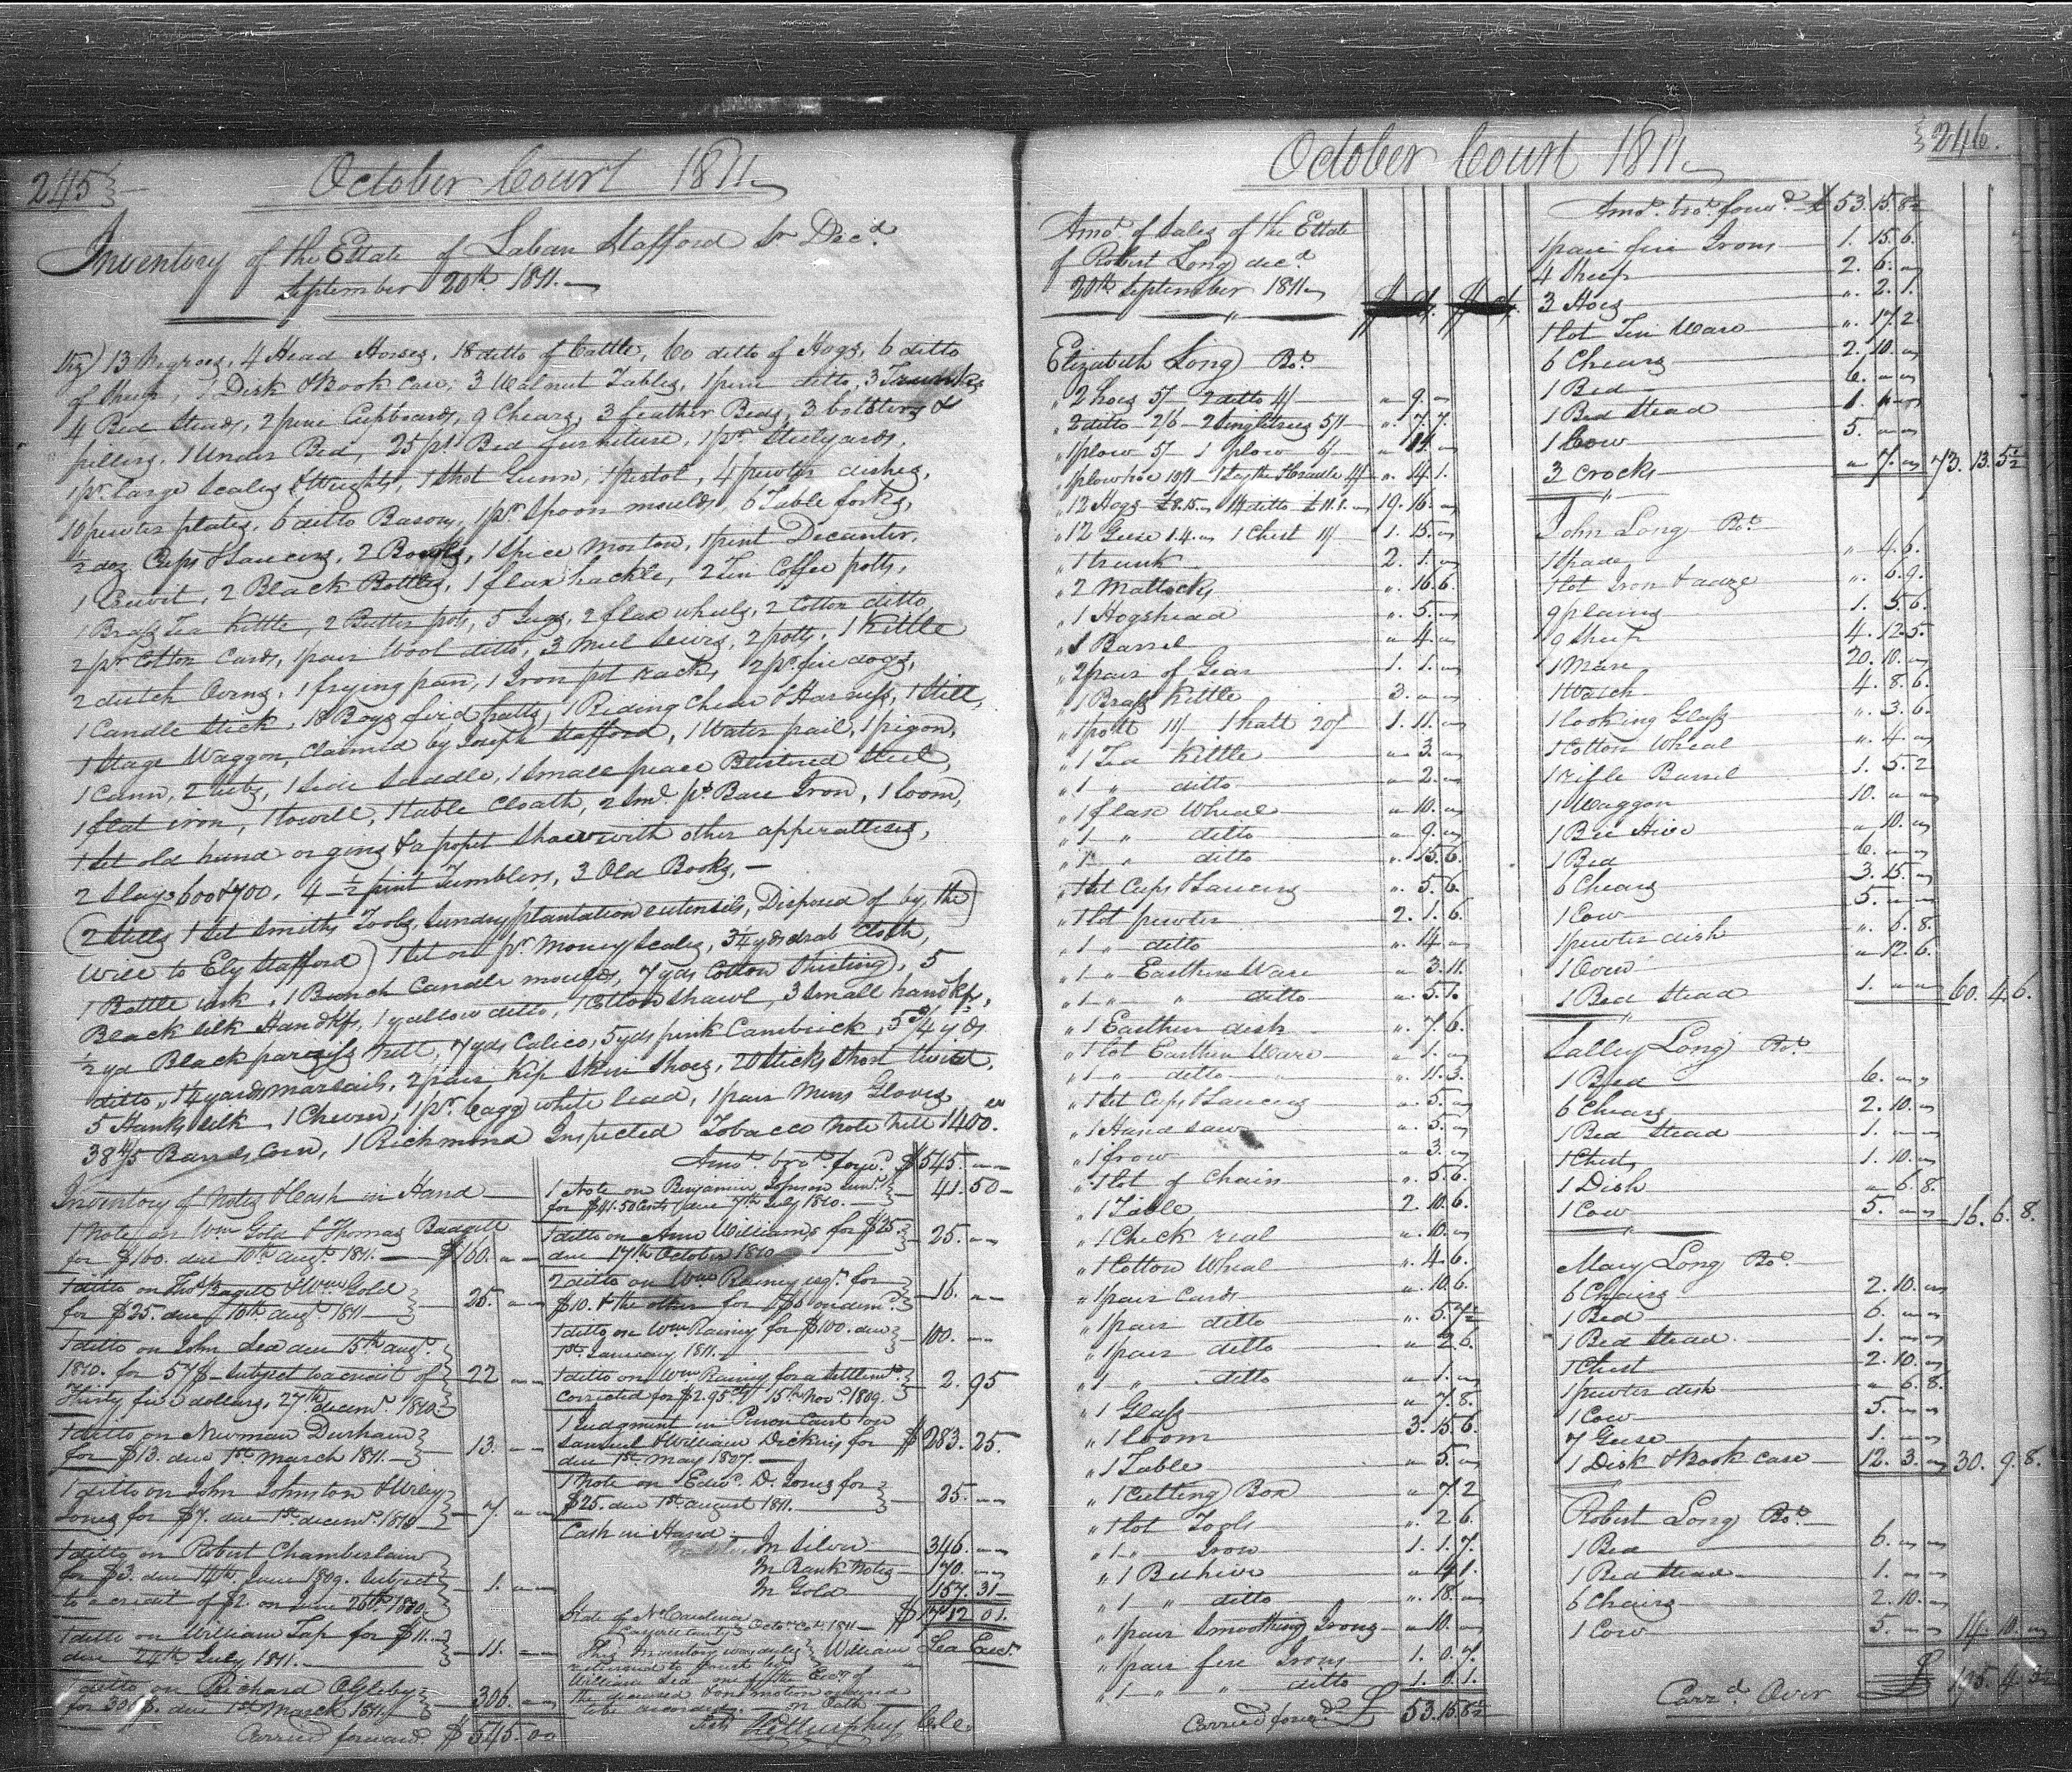 245
October Court 1811
Inventory of the Estate of Laban Stafford Sr Decd
September 20th 1811
Viz) 13 Negroes, 4 Head Horses, 18 ditto of Cattle, 60 ditto of Hogs, 6 ditto
of Sheep, 1 Disk & Book case, 3 Walnut Tables, 1 pine ditto, 3 Trunks
4 Bed Steads, 2 pine Cupboards, 9 Chears, 3 feather Beds, 3 bolsters &
pillers, 1 Under Bed, 25 ps Bed furniture, 1 pr Steelyards,
1 pr large Scales & Weights, 1 Shot Gunn, 1 pistol, 4 pewter dishes,
10 pewter plates, 6 ditto Basons, 1 pr Spoon moulds, 6 Table forks,
½ doz Cups & Saucers, 2 Bowls, 1 Spice Morton, 1 pint Decanter,
1 Cruvit, 2 Black Bottles, 1 flax hackle, 2 Tin Coffee potts,
1 Brass Tea Kittle, 2 Butter pots, 5 Jugs, 2 flax wheels, 2 Cotton ditto
2 pr Cotton Cards, 1 pair Wool ditto, 3 Meel Seives, 2 potts, 1 Kittle
2 dutch Ovens, 1 frying pan, 1 Iron pot rack, 2 pr fire dogs,
1 Candle Stick, 18 Boys hatts, 1 Riding Chear & Harness, 1 Still,
1 Stage Waggon, Claimed by Joseph Stafford, 1 Water pail, 1 pigon,
1 Cann, 2 Tubs, 1 Side Saddle, 1 Small peace Blistered Steel,
1 flat iron, 1 towell, 1 table Cloath, 2 Sml ps Bare Iron, 1 loom,
1 Set old hand organs & a popet Shaw with other apperattuses,
2 Slays 600 & 700, 4 ½ pint Tumblers, 3 Old Books,
(2 Stills 1 Set Smiths Tools, Sundry plantation eutensils, Disposed of by the
Will to Ely Stafford) 1 Set or pr Money Scales, 3¼ yds drab Cloth,
1 Bottle ink, 1 Bunch Candle moulds, 7 yds Cotton Shirting, 5
Black Silk Handkfs, 1 yallow ditto, 1 Cotton Shawl, 3 Small handkfs,
½ yd Black nett, 7 yds Calico, 5 yds pink Cambrick, 5¾ yds
ditto, 1¼ yards marsails, 2 pair Kip Skin Shoes, 20 Sticks Short twist,
5 Hanks Silk, 1 pr bagg white lead, 1 pair Mens Gloves
38 4/5 Barrels Corn, 1 Richmond Inspected Tobacco Note Nett 1400.
Inventory of Notes & Cash in Hand
1 Note on Wm Gold & Thomas Badgett
for $160. due 10th augt 1811. $160.
1 ditto on Thos Bagett & Wm Gold
for $25. due 10th augt 1811 25.
1 ditto on John Lea due 15th augt
1810. for 57$ Subject to a credit of 22
Thirty five dollars, 27th decemr 1810.
1 ditto on Newman Durham
for $13. due 1st March 1811. 13.
1 ditto on John Johnston & Wiley
Jones for $7. due 1st decemr 1810 7.
1 ditto on Robert Chamberlain
for $3. due 14th June 1809. Subject 1.
to a credit of $2. on June 26th 1810.
1 ditto on William Tap for $11.
due 24th July 1811. 11.
1 ditto on Richard Ogleby
for 306$. due 1st March 1811 306.
Carried forward $545.00
Amot brot forwd $545.
1 Note on Benjamin Johnson
for $41.50 Cents due 7th July 1810. 41.50
1 ditto on Ann Williams for $25.
due 17th October 1810 25.
2 ditto on Wm Rainey for
$10. & the other for $6 16.
1 ditto on Wm Rainey for $100. due
1st January 1811. 100.
1 ditto on Wm Rainey for a Settlemt
corrected for $2.95 cts 15th Novr 1809. 2.95
1 Judgment in Person Court on
Samuel & William Dickins for $283.25.
due 1st May 1807.
1 Note on Edwd D. Jones for
$25. due 1st august 1811. 25.
Cash in Hand
In Silver 346.
In Bank Notes 170.
In Gold 157.31
$1712 01.
State of No Carolina
Caswell County Octor Ct 1811
This Inventory was duly William Lea Exer
returned to Court by
William Lea one of the Exrs of
the deceased & on motion ordered
to be recorded. on Oath
Test A D Murphey Clk
246.
October Court 1811
Amot of Sales of the Estate
of Robert Long decd
20th September 1811
Elizabeth Long Bot
" 2 hoes 5/ 2 ditto 4/ " 9. "
" 2 ditto 2/6 2 Singletrees 5/1 " 7. 7.
" 1 plow 5/ 1 plow 6/ " 11. "
" 1 plow hoe 10/1 1 Scythe & Cradle 4/ " 14. 1.
" 12 Hogs £8.15. 14 ditto £11.1. 19. 16. "
" 12 Geese 1.4. 1 Chest 11/ 1. 15. "
" 1 trunk 2. 1. "
" 2 Mattocks " 16. 6.
" 1 Hogshead " 5. "
" 1 Barrel " 4. "
" 2 pair of Gear 1. 1. "
" 1 Brass Kittle 3. " "
" 1 pott 11/ 1 hatt 20/ 1. 11. "
" 1 Tea Kittle " 3. "
" 1 " ditto " 2. "
" 1 flax Wheal " 10. "
" 1 " ditto " 9. "
" 1 " ditto " 15. 6.
" 1 Set Cups & Saucers " 5. 6.
" 1 lot pewter 2. 1. 6.
" 1 " ditto " 14. "
" 1 " Earthen Ware " 3. 11.
" 1 " " ditto " 5. 1.
" 1 Earthen dish " 7. 6.
" 1 lot Earthen Ware " 1. "
" 1 " ditto " 11. 3.
" 1 Set Cups & Saucers " 5. "
" 1 Hand Saw " 5. "
" 1 frow " 3. "
" 1 lot of Chain " 5. 6.
" 1 Table 2. 10. 6.
" 1 Check real " 10. "
" 1 Cotton Wheal " 4. 6.
" 1 pair Cards " 10. 6.
" 1 pair ditto " 5. 7½
" 1 pair ditto " 2 6.
" 1 " ditto " 1. "
" 1 Glass " 7. 8.
" 1 loom 3. 15. 6.
" 1 Table " 5. "
" 1 Cutting Box " 7 2
" 1 lot Tools " 2 6.
" 1 " Iron 1. 1. 7.
" 1 Beehive " 4 1.
" 1 " ditto " 18. "
" 1 pair Smoothing Irons " 10. "
" 1 pair fire Irons 1. 0. 7.
" 1 " " ditto 1. 0. 1.
Carried forwd £ 53. 15. 8½
Amot brot forwd £ 53. 15. 8½
1 pair fire Irons 1. 15. 6.
4 Sheep 2. 6. "
3 Hoes " 2. 1.
1 lot Tin Ware " 17. 2
6 Chears 2. 10. "
1 Bed 6. " "
1 Bed Stead 1. " "
1 Cow 5. " "
3 crocks " 7. " 73. 13. 5½
John Long Bot
1 Spade " 4. 6.
1 lot Iron & adze " 6. 9.
9 plains 1. 5. 6.
9 Sheep 4. 12. 5.
1 Mare 20. 10. "
1 Watch 4. 8. 6.
1 looking Glass " 3. 6.
1 Cotton Wheal " 4. "
1 rifle Barrel 1. 5. 2
1 Waggon 10. " "
1 Bee Hive " 10. "
1 Bed 6. " "
6 Chears 3. 15. "
1 Cow 5. " "
1 pewter dish " 6. 8.
1 Oven " 12. 6.
1 Bed Stead 1. " " 60. 4. 6.
Salley Long Bot
1 Bed 6. " "
6 Chears 2. 10. "
1 Bed Stead 1. " "
1 Chest 1. 10. "
1 Dish " 6. 8.
1 Cow 5. " " 16. 6. 8.
Mary Long Bot
6 Chairs 2. 10. "
1 Bed 6. " "
1 Bed Stead 1. " "
1 Chest 2. 10. "
1 pewter dish " 6. 8.
1 Cow 5. " "
7 Geese 1. " "
1 Disk & Book case 12. 3. " 30. 9. 8.
Robert Long Bot
1 Bed 6. " "
1 Bed Stead 1. " "
6 Chears 2. 10. "
1 Cow 5. " " 14. 10. "
Carrd Over £ 195. 4. 3½